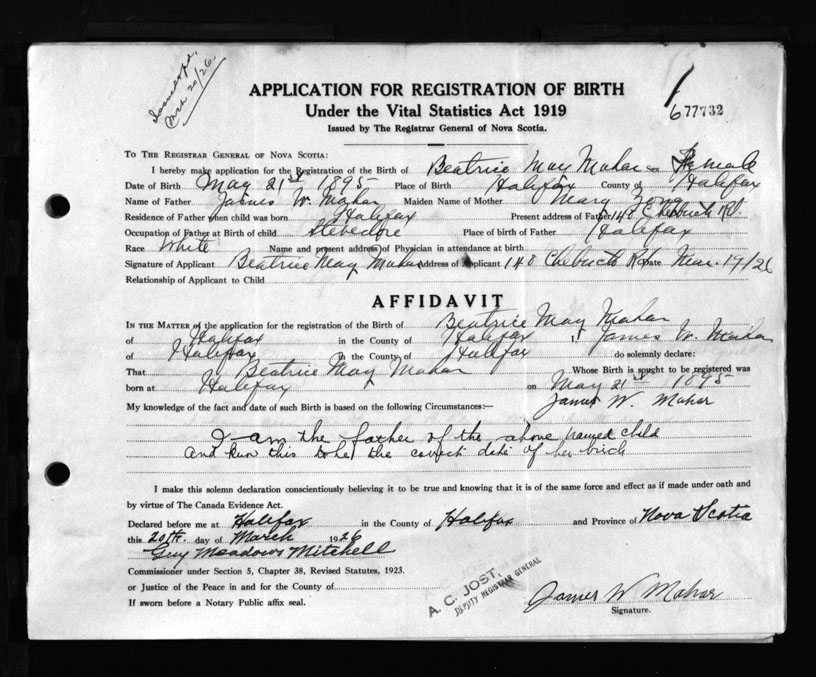 Mch 20/26.
APPLICATION FOR REGISTRATION OF BIRTH
Under the Vital Statistics Act 1919
Issued by The Registrar General of Nova Scotia.
677732
To The Registrar General of Nova Scotia:
I hereby make application for the Registration of the Birth of Beatrice May Mahar Sex Female
Date of Birth May 21st 1895 Place of Birth Halifax County of Halifax
Name of Father James W. Mahar Maiden Name of Mother Mary
Residence of Father when child was born Halifax Present address of Father 148 Chebucto Rd.
Occupation of Father at Birth of child Stevedore Place of birth of Father Halifax
Race White Name and present address of Physician in attendance at birth
Signature of Applicant Beatrice May Mahar Address of Applicant 148 Chebucto Rd Date Mar. 17/26
Relationship of Applicant to Child
AFFIDAVIT
In the Matter of the application for the registration of the Birth of Beatrice May Mahar
of Halifax in the County of Halifax I, James W. Mahar
of Halifax in the County of Halifax do solemnly declare:
That Beatrice May Mahar Whose Birth is sought to be registered was
born at Halifax on May 21st 1895
My knowledge of the fact and date of such Birth is based on the following Circumstances:— James W. Mahar
I am the father of the above named child
and know this to be the correct date of her birth
I make this solemn declaration conscientiously believing it to be true and knowing that it is of the same force and effect as if made under oath and
by virtue of The Canada Evidence Act.
Declared before me at Halifax in the County of Halifax and Province of Nova Scotia
this 20th. day of March 1926
Guy Meadows Mitchell
Commissioner under Section 5, Chapter 38, Revised Statutes, 1923.
or Justice of the Peace in and for the County of
If sworn before a Notary Public affix seal.
A. C. JOST,
DEPUTY REGISTRAR GENERAL
James W Mahar
Signature.